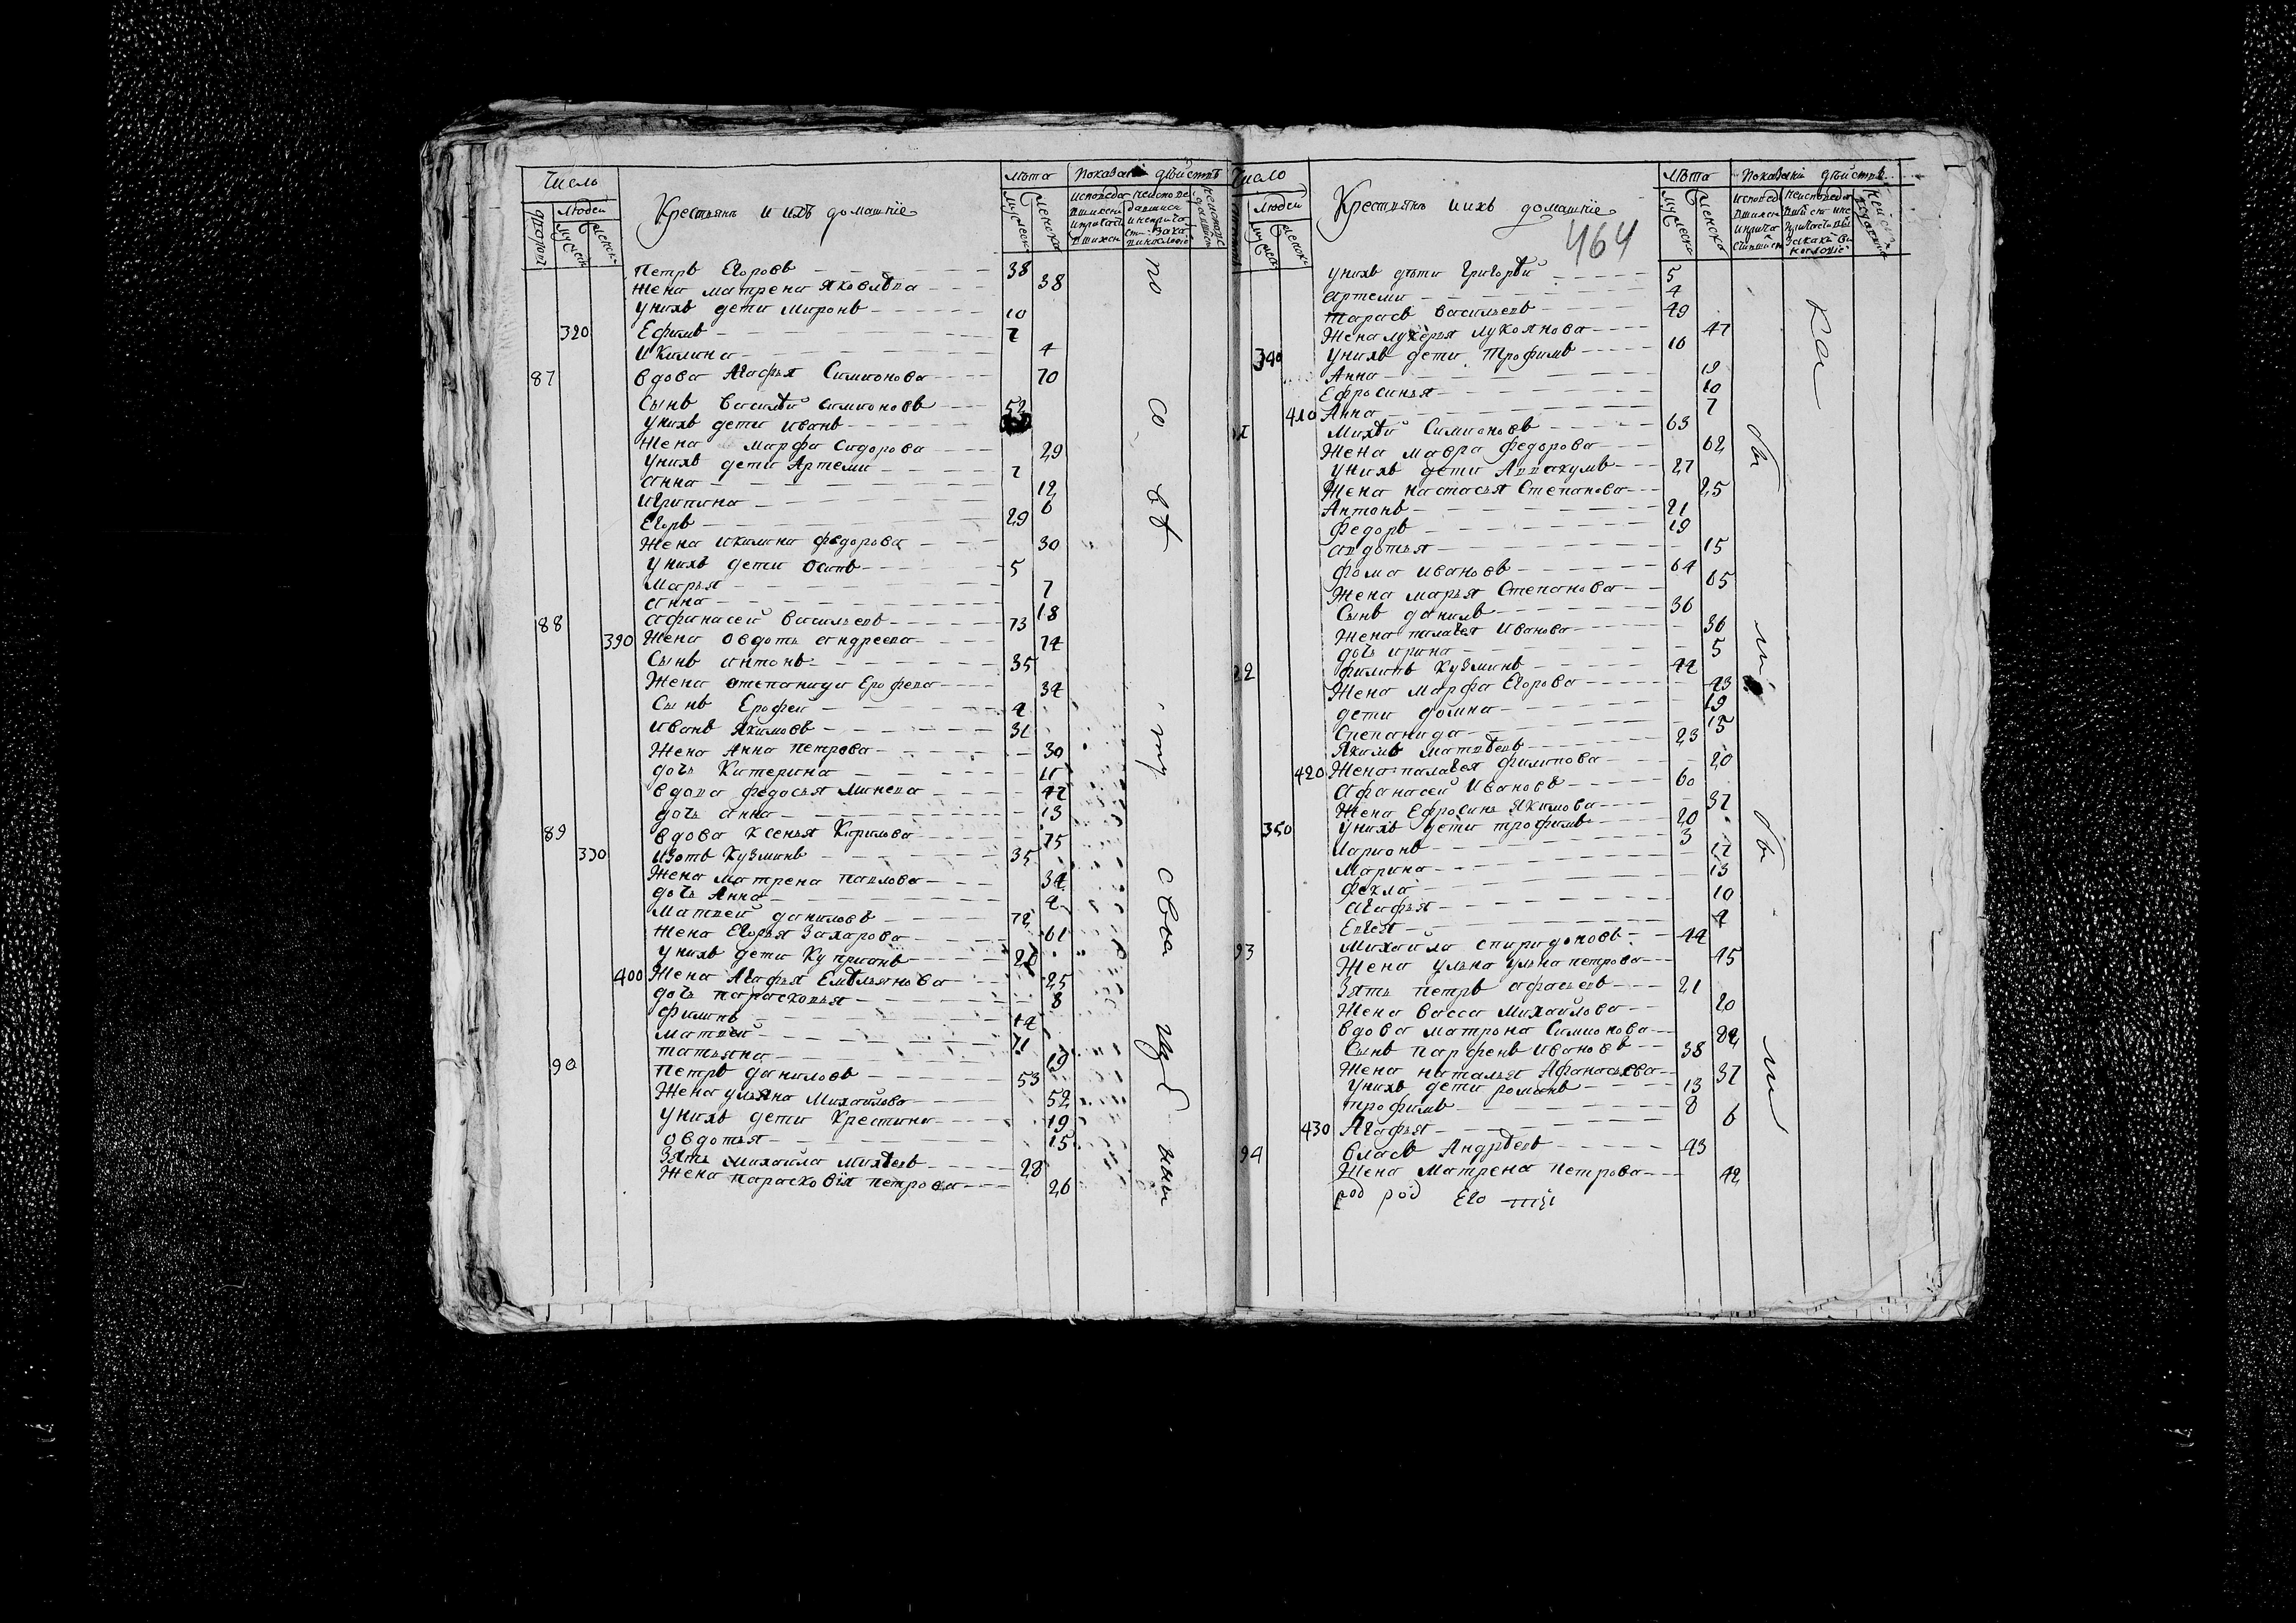 Число
Людей
Крестьянъ и ихъ домашніе
Лѣта
Показаніи дѣйств
Петръ Егоровъ 38
Жена Матрена Яковлева 38
У нихъ дети Миронъ 10
320 Ефимъ 7
Икилина 4
87 Вдова Агафья Симионова 70
Сынъ Василѣй Симионовъ 52
У нихъ дети Иванъ
Жена Марфа Сидорова 29
У нихъ дети Артеми 7
Анна 12
Игрипина 6
Егоръ 29
Жена Икилина Федорова 30
У нихъ дети Осипъ 5
Марья 7
Анна 18
88 Афанасей Васильевъ 73
390 Жена Овдоть Андреева 74
Сынъ Антонъ 35
Жена Степанида Ерофева 34
Сынъ Ерофеи 4
Иванъ Якимовъ 31
Жена Анна Петрова 30
дочь Катерина 11
Вдова Федосья Минева 47
дочь Анна 13
89 Вдова Ксенья Кирилова 75
330 Изотъ Кузминъ 35
Жена Матрена Павлова 34
дочь Анна 4
Матвей Даниловъ 72
Жена Егорья Захарова 61
У нихъ дети Куприянъ 26
400 Жена Агафья Емѣльянова 25
дочь Парасковья 8
Филипъ 14
Матвей 11
Татьяна 19
90 Петръ Даниловъ 53
Жена Ульяна Михайлова 52
У нихъ дети Крестина 19
Овдотья 15
Зять Михаила Михѣевъ 28
Жена Парасковія Петрова 26
Число
Людей
Крестьянъ и ихъ домашніе
464
Лѣта
Показаніи дѣйств
У нихъ дѣти Григорѣй 5
Артеми 4
Тарасъ Васильевъ 49
Жена Лукерья Лукоянова 47
340 У нихъ дети Трофимъ 16
Анна 19
Ефросинья 10
410 Анна 7
Михѣй Симионовъ 63
Жена Мавра Федорова 62
У нихъ дети Аввакумъ 27
Жена Настасья Степанова 25
Антонъ 21
Федоръ 19
Авдотья 15
Фома Ивановъ 64
Жена Марья Степанова 65
Сынъ Данилъ 36
Жена Палагея Иванова 36
дочь Ирина 5
Филипъ Кузминъ 44
Жена Марфа Егорова 43
дети Домна 19
Степанида 15
Якимъ Матвѣевъ 23
420 Жена Палагея Филипова 20
Афанасей Ивановъ 60
Жена Ефросинь Якимова 37
350 У нихъ дети Трофимъ 20
Ларионъ 3
Марина 17
Фекла 13
Агафья 10
Евгея 4
93 Михаила Спиридоновъ 44
Жена Ульна Ульна Петрова 45
Зять Петръ Афасьевъ 21
Жена Васса Михайлова 20
Вдова Матрона Симионова 82
Сынъ Парфенъ Ивановъ 38
Жена Наталья Афанасьева 37
У нихъ дети Романъ 13
Трофимъ 8
430 Агафья 6
94 Власъ Андрѣевъ 43
Жена Матрена Петрова 42